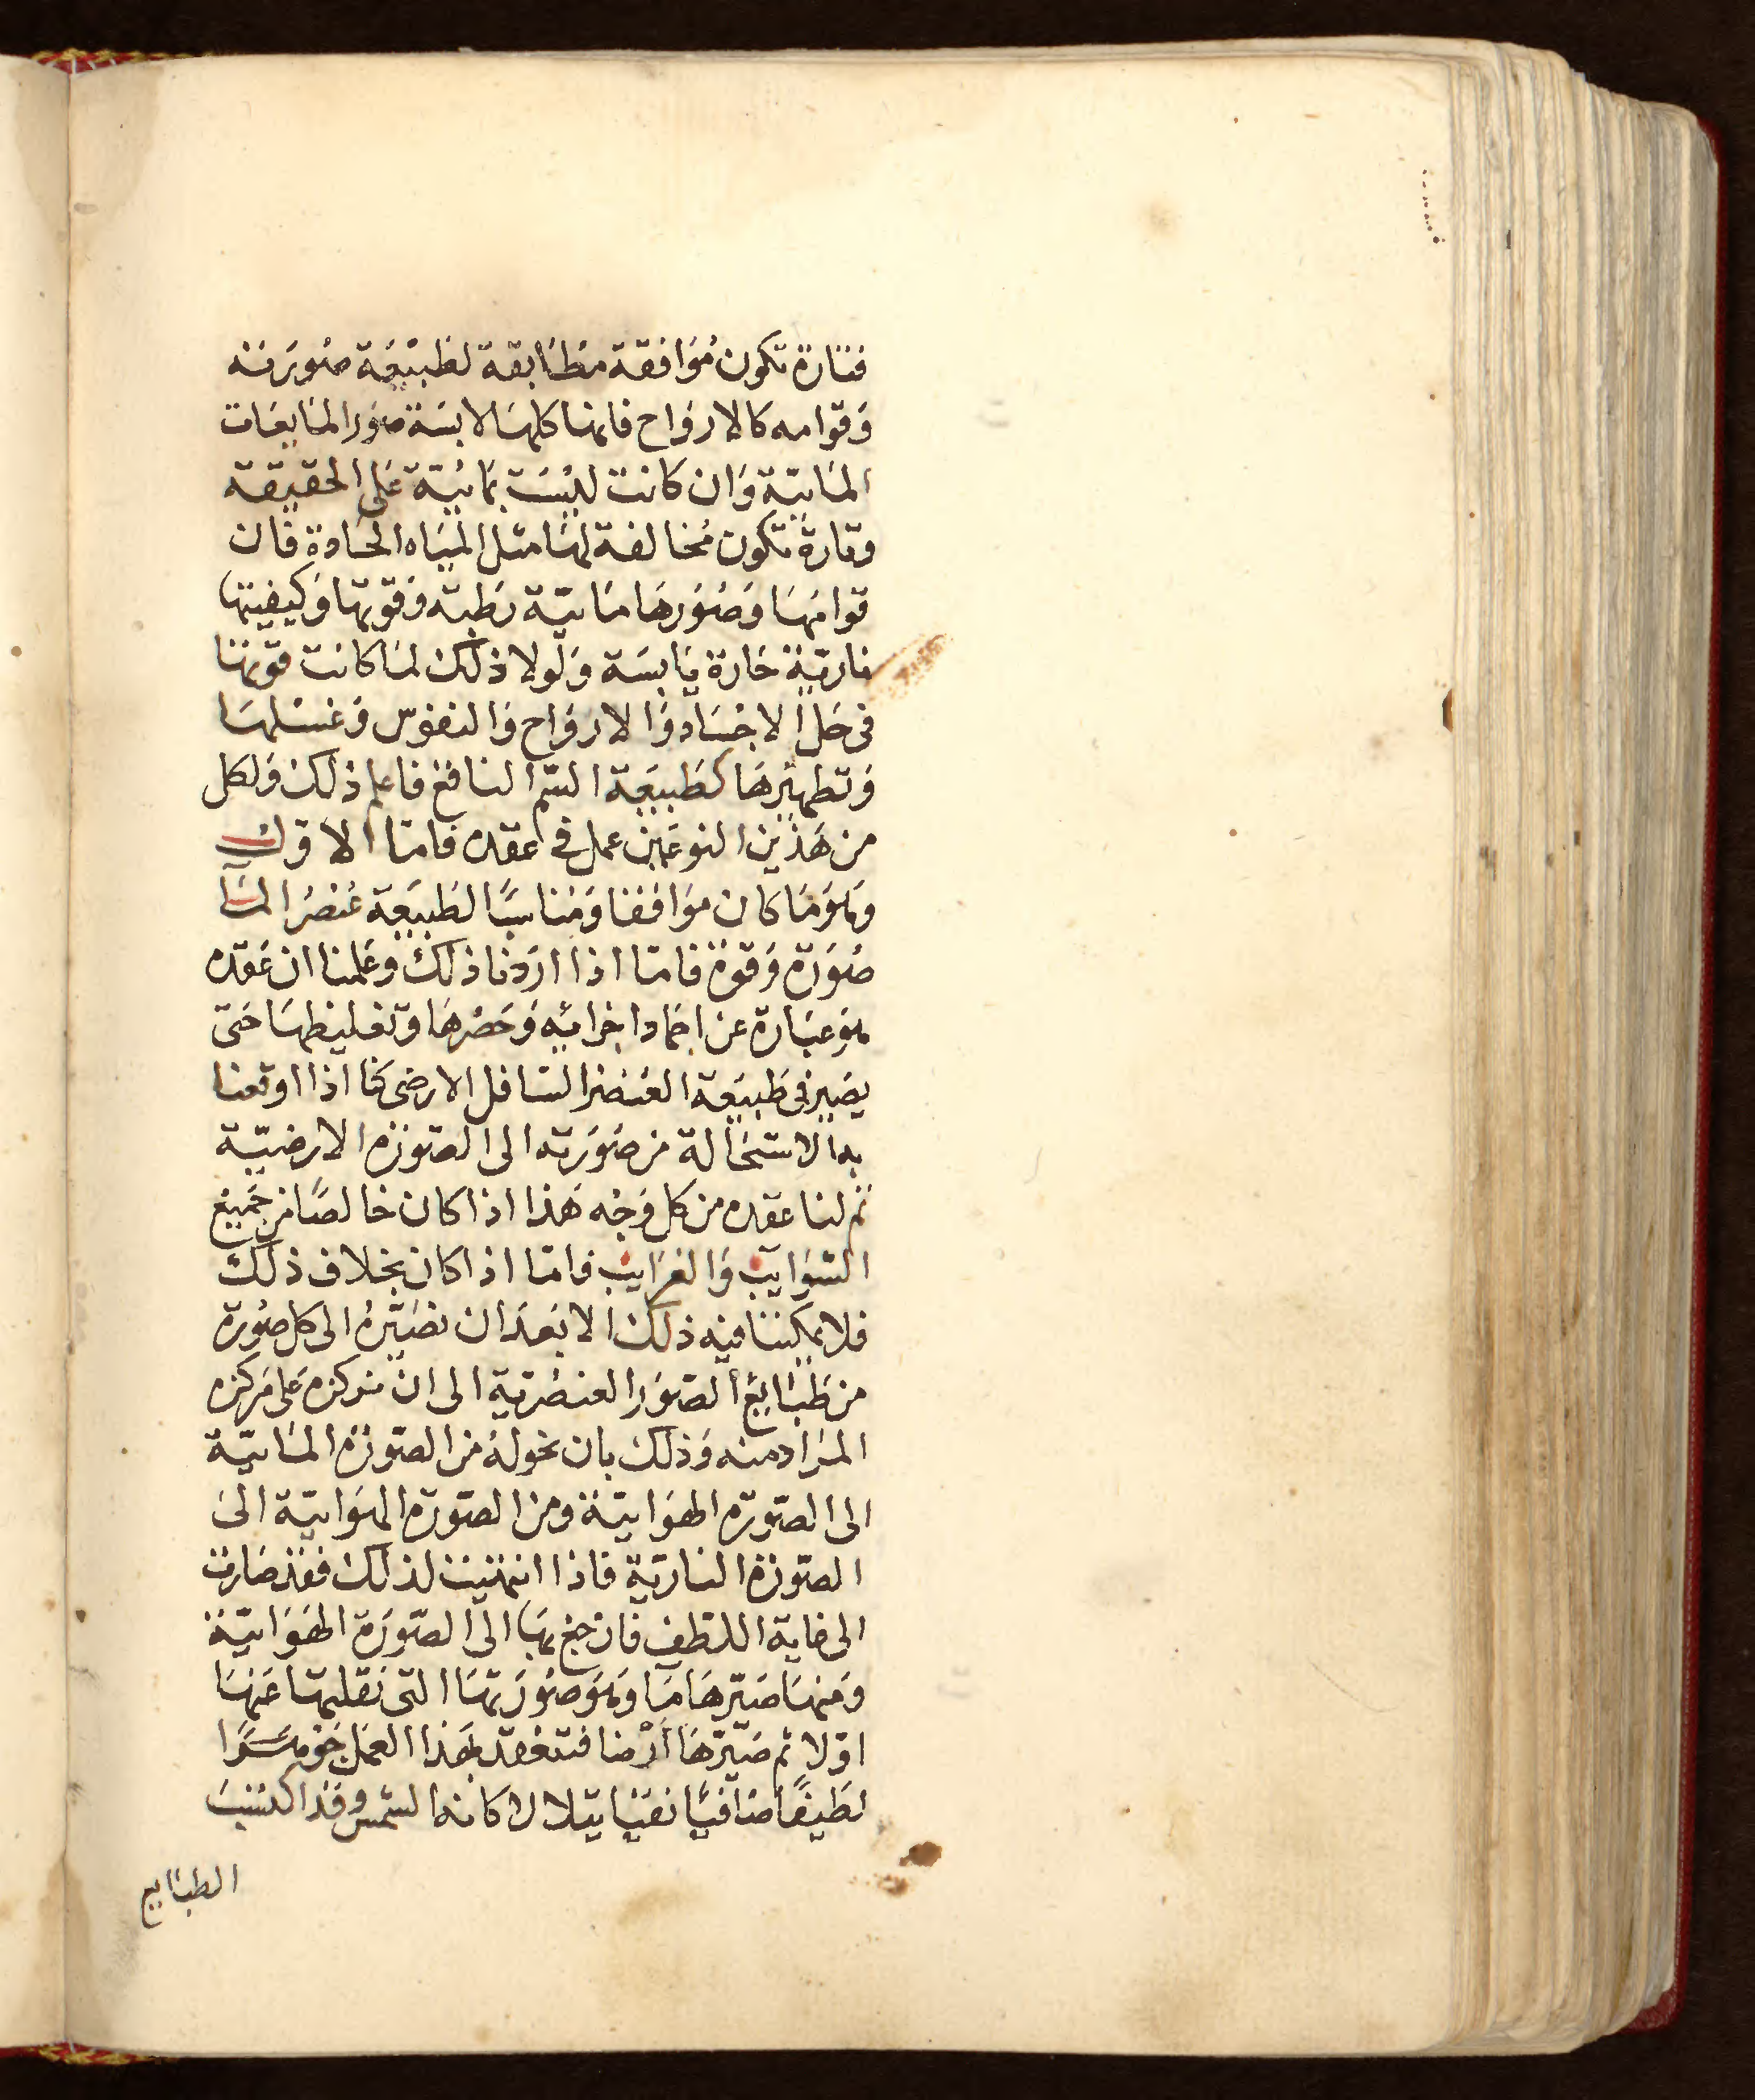 فتارة تكون مُوَافقة مطَابقة لطَبيْعَة صُورَته
وَقوامه كالارواح فانها كلهَا لابسَة صُوَر المَايعَات
المَايية وَان كانت ليْسَت بمَائيّة عَلى الحقيقة
وتارة تكون مُخالفة لهَا مثل الميَاه الحَادة فان
قوامهَا وَصُوَرهَا مَاييّة رَطبة وَقوتها وَكيفيتها
نارية حَارة يَابسَة وَلولا ذلك لمَا كانت قوتها
فى حَل الاجْسَاد وَالارواح وَالنفوس وَغسْلهَا
وَتطهيرهَا كطَبيعَة السّم الناقع فاعلم ذلك وَلكل
من هَذين النوعَين عمل فى عقده فامّا الاوّل
وَهُوَ مَا كان مَوَافقا وَمُناسبًا لطَبيعَة عُنصُر المَآ
صُورَة وَقوة فامّا اذا ارَدنا ذلك وعَلمنا ان عَقده
هوَ عبَارة عن اجمَاد اجزائه وَحَصْرهَا وَتغليظهَا حَتى
يصَير فى طَبيعَة العُنصْر السّافل الارضى كنا اذا اوقعنا
به الاستحَالة من صُوَرته الى الصّورة الارضيّة
تم لنا عقده من كل وَجْه هَذا اذا كان خالصًا من جَميع
الشوَايب وَالغرايب فامّا اذا كان بخلاف ذلك
فلا يمكننا فيه ذلك الا بَعدَ ان نصَيّرهُ الى كل صُورَة
من طَبَايع الصّوَر العنصُريّة الى ان نركزه عَلى مَركزه
المرَاد منه وَذلك بان نحولهُ من الصّورة المَاييّة
الى الصّورَه الهوَاييّة ومن الصّورَة الهوَاييّة الى
الصّورَة الناريّة فاذا انتهيت لذلك فقد صَارت
الى غاية اللطف فان رجع بهَا الى الصّورَة الهَوَاييّة
وَمنهَا صَيّرهَا مَا وَهُوَ صُوَرتهَا التى نقلتها عَنهَا
اوّلا ثم صَيّرهَا اَرْضا فتنعْقد بهَذا العمَل جَوهَرًا
لطَيفًا صَافيًا نقيَا يتلالا كانه الشمس وقد اكتسَبَ
الطبَايع